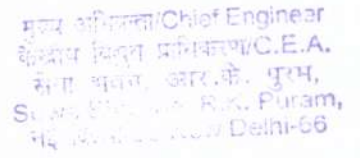 मुख्य अभियन्ता/Chief Engineer
केन्द्रीय विद्युत प्राधिकरण/C.E.A.
सेवा भवन, आर.के. पुरम,
R.K. Puram,
New Delhi-66